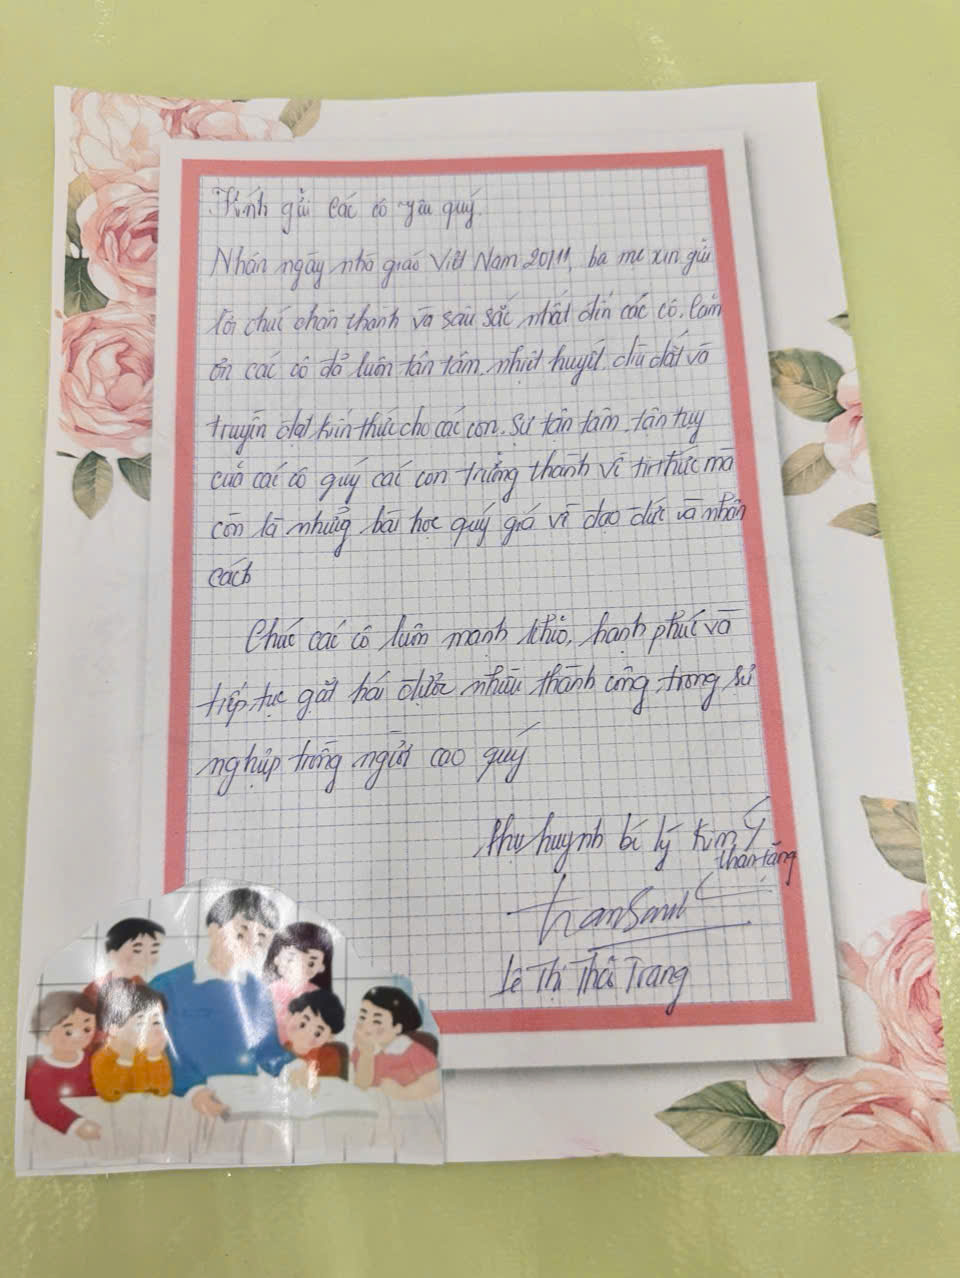 Kính gửi các cô yêu quý.
Nhân ngày nhà giáo Việt Nam 20/11, ba mẹ xin gửi
lời chúc chân thành và sâu sắc nhất đến các cô. Cảm
ơn các cô đã luôn tận tâm, nhiệt huyết, dìu dắt và
truyền đạt kiến thức cho các con. Sự tận tâm, tận tuỵ
của các cô giúp các con trưởng thành về tri thức mà
còn là những bài học quý giá về đạo đức và nhân
cách
Chúc các cô luôn mạnh khỏe, hạnh phúc và
tiếp tục gặt hái được nhiều thành công trong sự
nghiệp trồng người cao quý
Phụ huynh bé Lý Kim Ý
thân tặng
Lê Thị Thái Trang